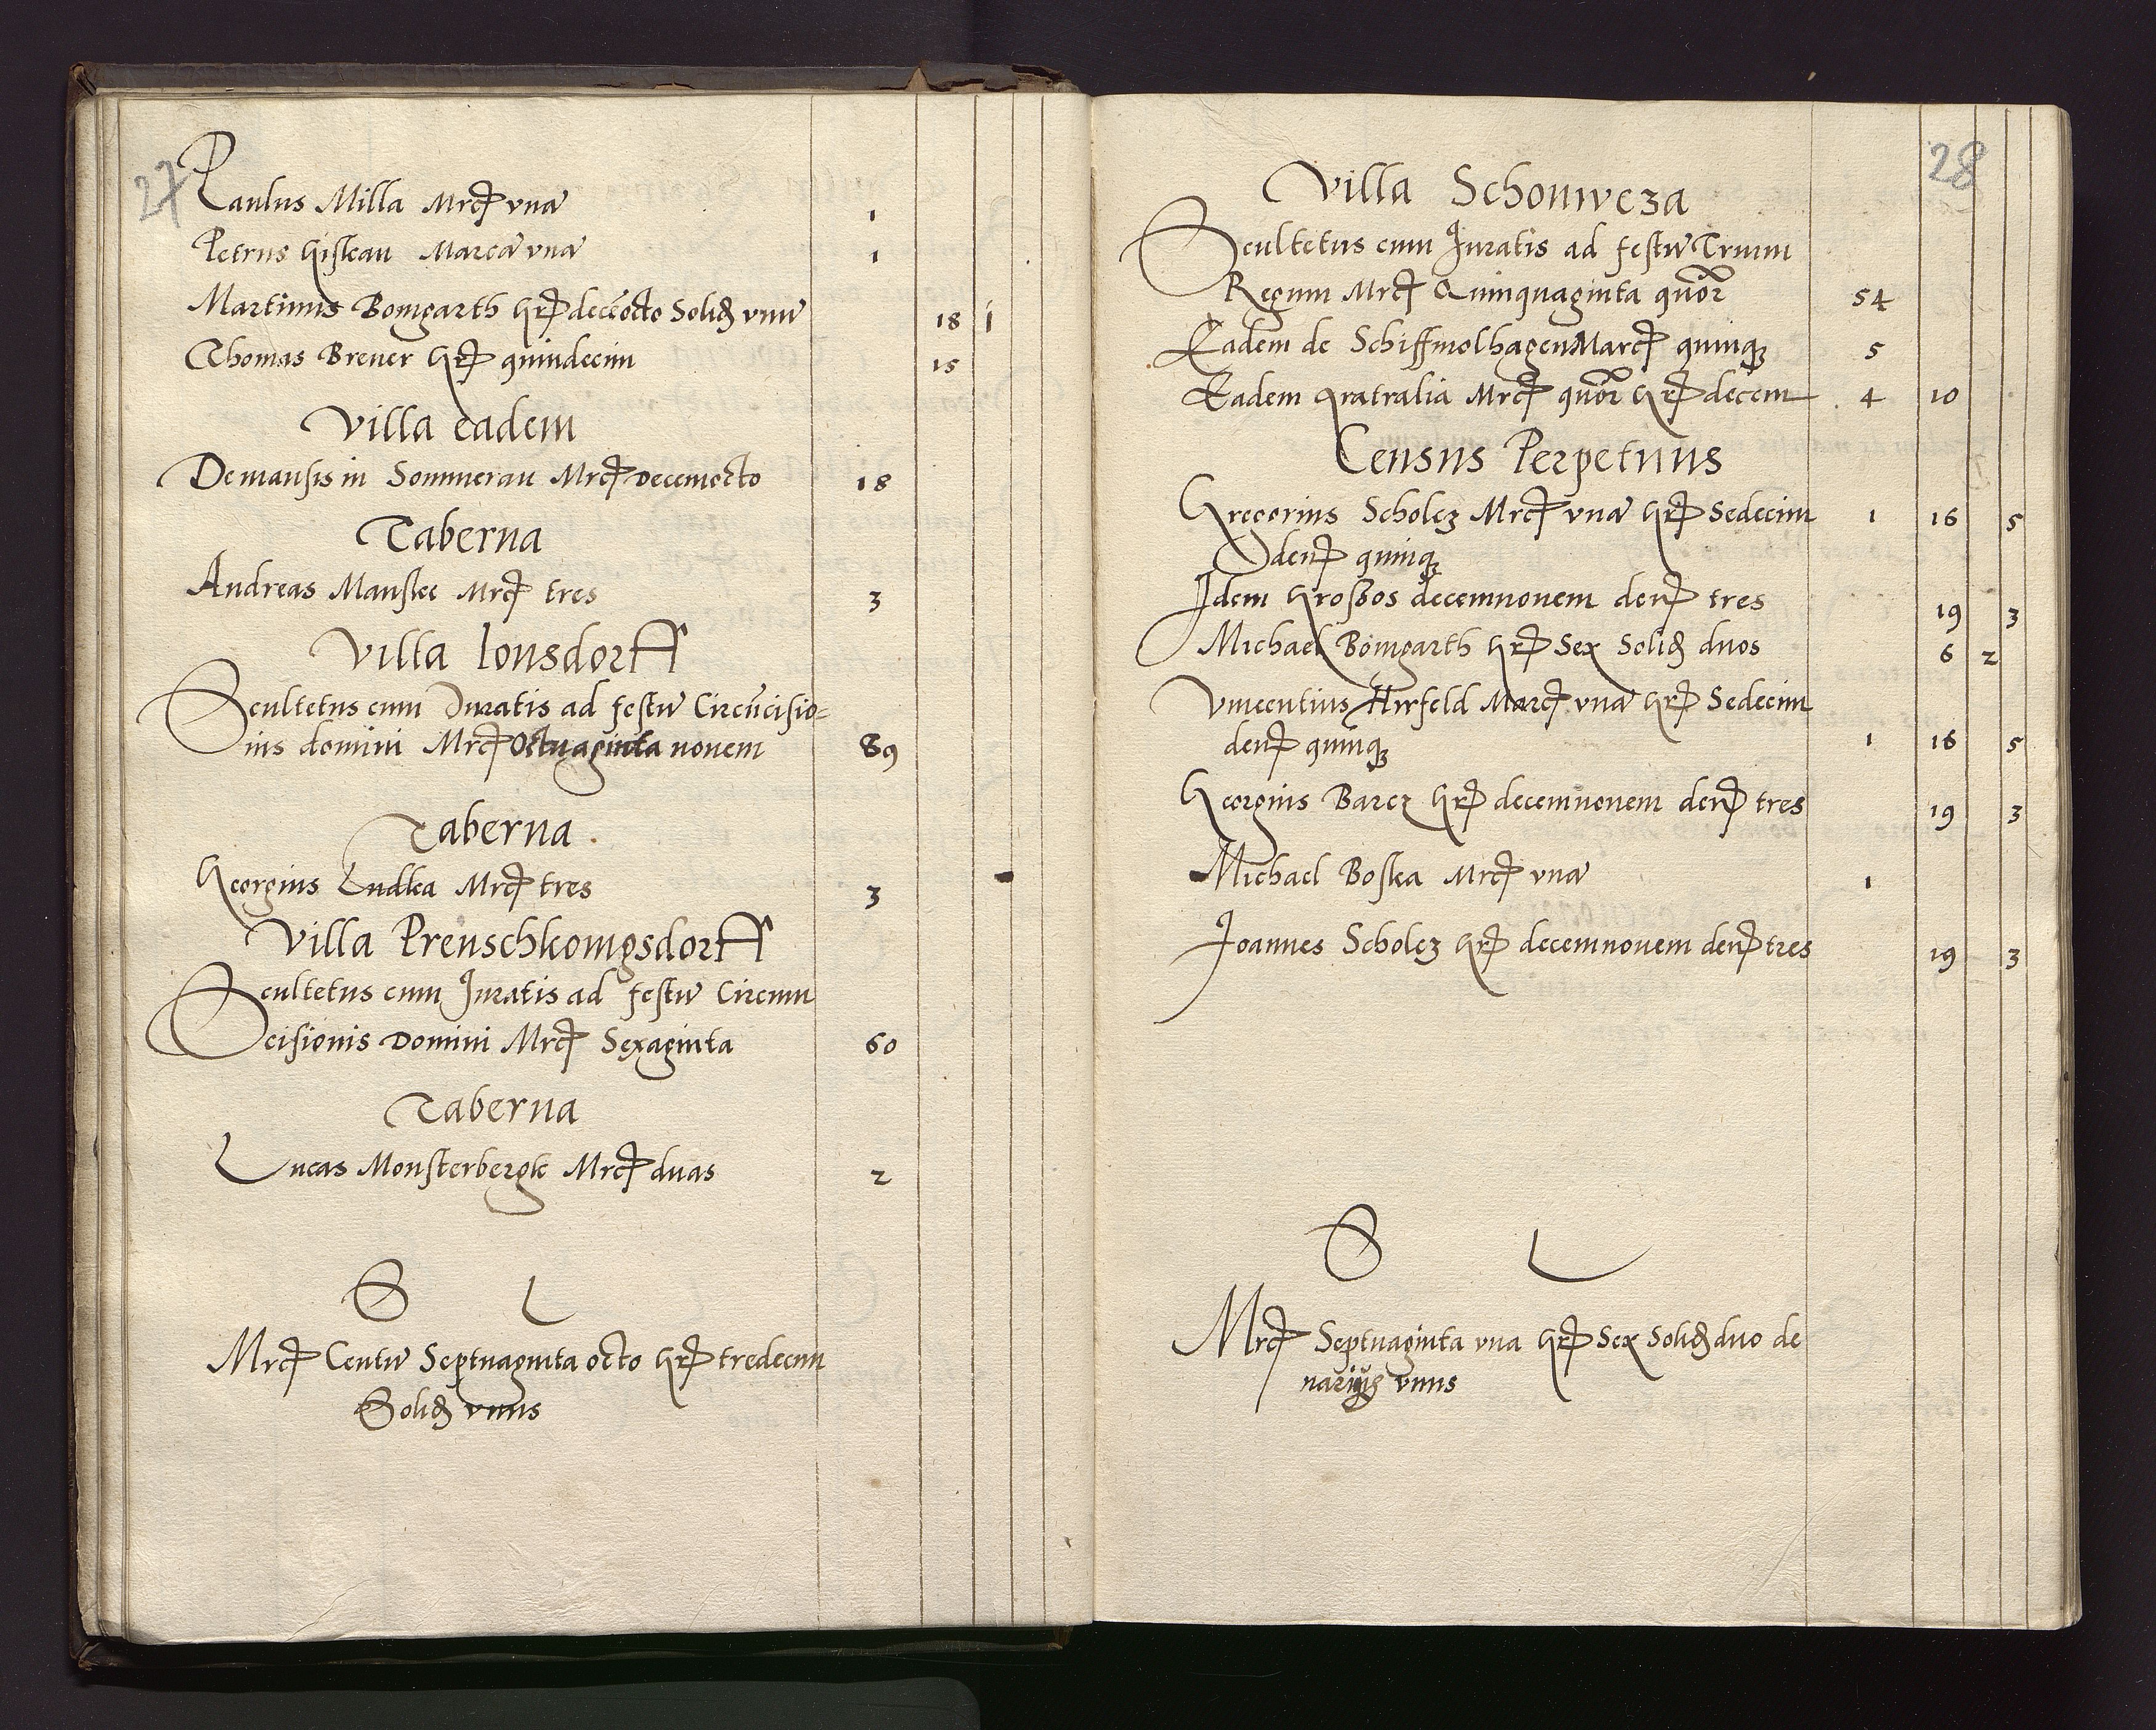 27
Paulus Milla Mrcꝭ vnā 1
Petrus Histkau Marcā vnā 1
Martinus Bomgarth Grꝭ decēocto Solid vnū 18 1
Thomas Brener Grꝭ quindecim 15
Villa eadem
De mansis in Sommerau Mrcꝭ Decemocto 18
Taberna
Andreas Manskee Mrcꝭ tres 3
Villa Ionsdorff
Scultetus cum Juratis ad festū Circūcisio=
nis domini Mrcꝭ Octuaginta nouem 89
Taberna
Georgius Ludka Mrcꝭ tres 3
Villa Preuschkonigsdorff
Scultetus cum Juratis ad festū Circum
cisionis Domini Mrcꝭ Sexaginta 60
Taberna
Lucas Monsterbergk Mrcꝭ duas 2
S L
Mrcꝭ Centū Septuaginta octo Grꝭ tredecim
Solid vnus
28
Villa Schonweza
Scultetus cum Juratis ad festū Trium
Regum Mrcꝭ Quinquaginta quōr 54
Eadem de Schiffmolhagen Marcꝭ quinqꝫ 5
Eadem Pratralia Mrcꝭ quōr Grꝭ decem 4 10
Census Perpetuus
Gregorius Scholcz Mrcꝭ vnā Grꝭ Sedecim 1 16 5
denꝭ quinqꝫ
Idem Großos decemnouem denꝭ tres 19 3
Michael Bomgarth Grꝭ Sex Solid duos 6 2
Vincentius Hirfeld Marcꝭ vnā Grꝭ Sedecim
denꝭ quinqꝫ 1 16 5
Georgius Barcz Grꝭ decemnouem denꝭ tres 19 3
Michael Boska Mrcꝭ vnā 1
Joannes Scholcz Grꝭ decemnouem denꝭ tres 19 3
S L
Mrcꝭ Septuaginta vna Grꝭ Sex Solid duo de
narius vnus